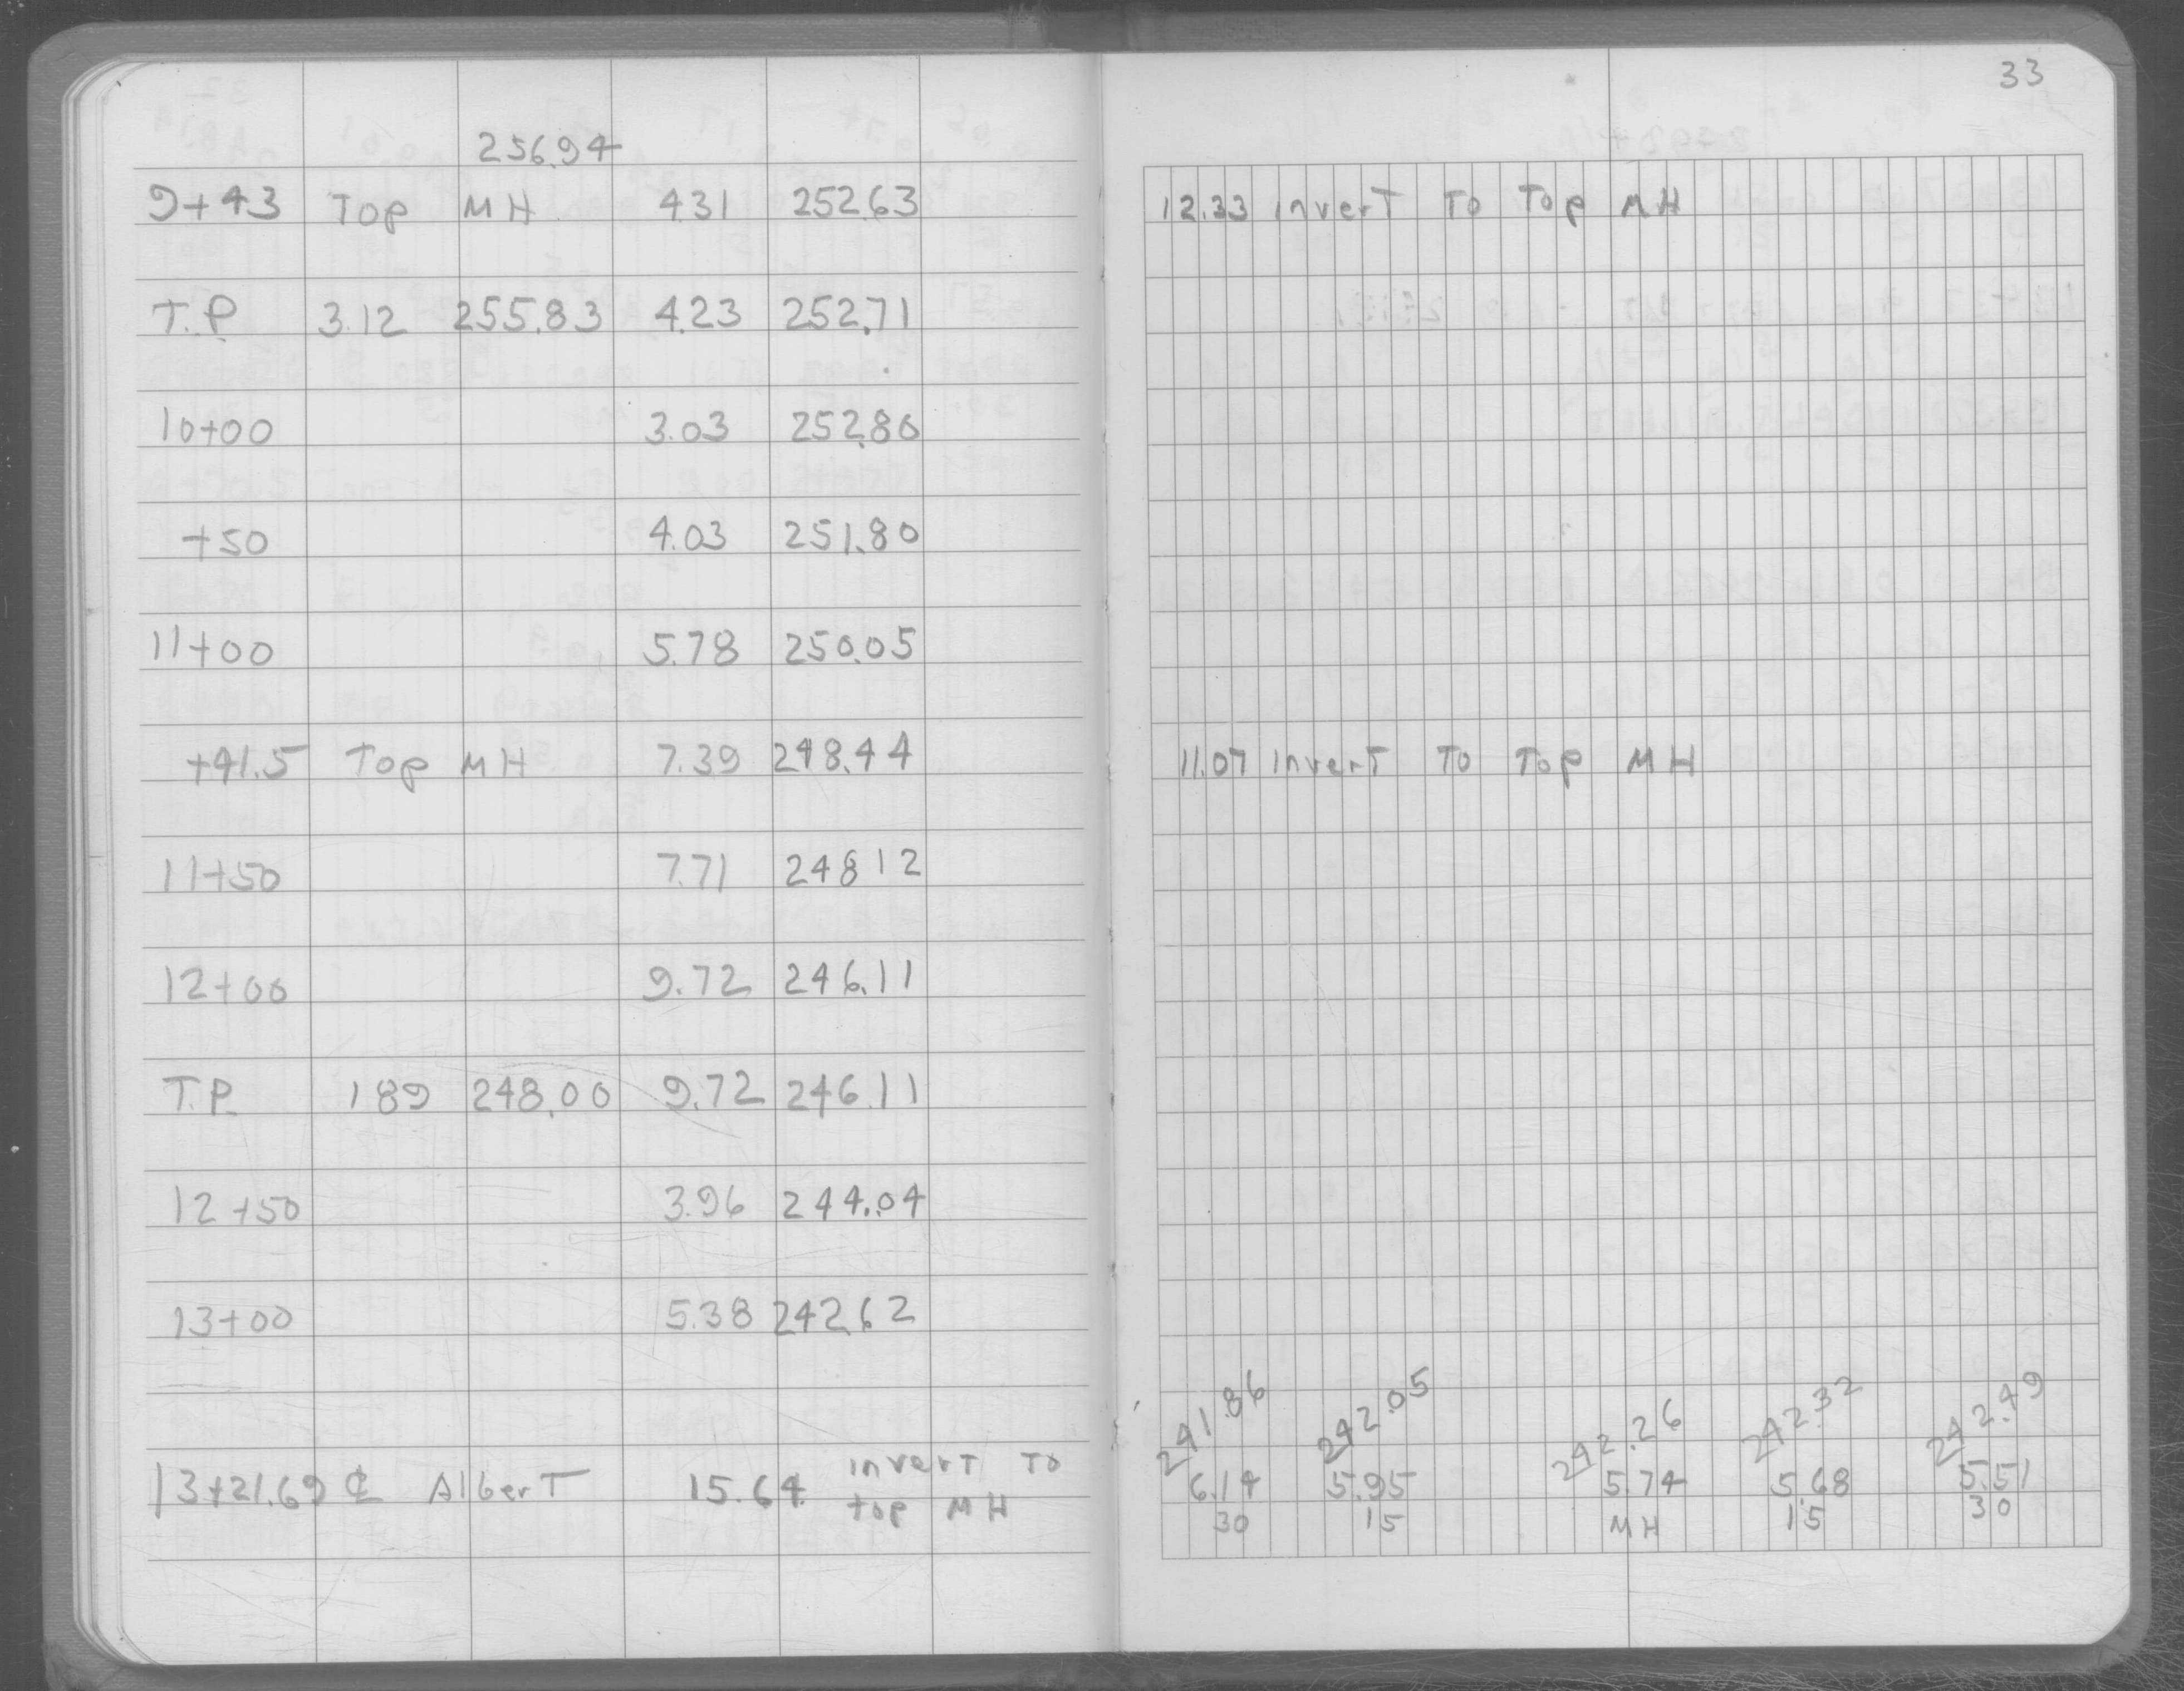 33
256.94
9+43 Top MH 4.31 252.63 12.33 invert To Top MH
T.P. 3.12 255.83 4.23 252.71
10+00 3.03 252.80
+50 4.03 251.80
11+00 5.78 250.05
+41.5 Top MH 7.39 248.44 11.07 invert To Top MH
11+50 7.71 248 12
12+00 9.72 246.11
T.P. 1 89 248.00 9.72 246.11
12+50 3.96 244.04
13+00 5.38 242.62
241.86 242.05 242.26 242.32 242.49
13+21.69 ℄ AlberT 15.64 invert To top MH 6.14 5.95 5.74 5.68 5.51
30 15 MH 15 30